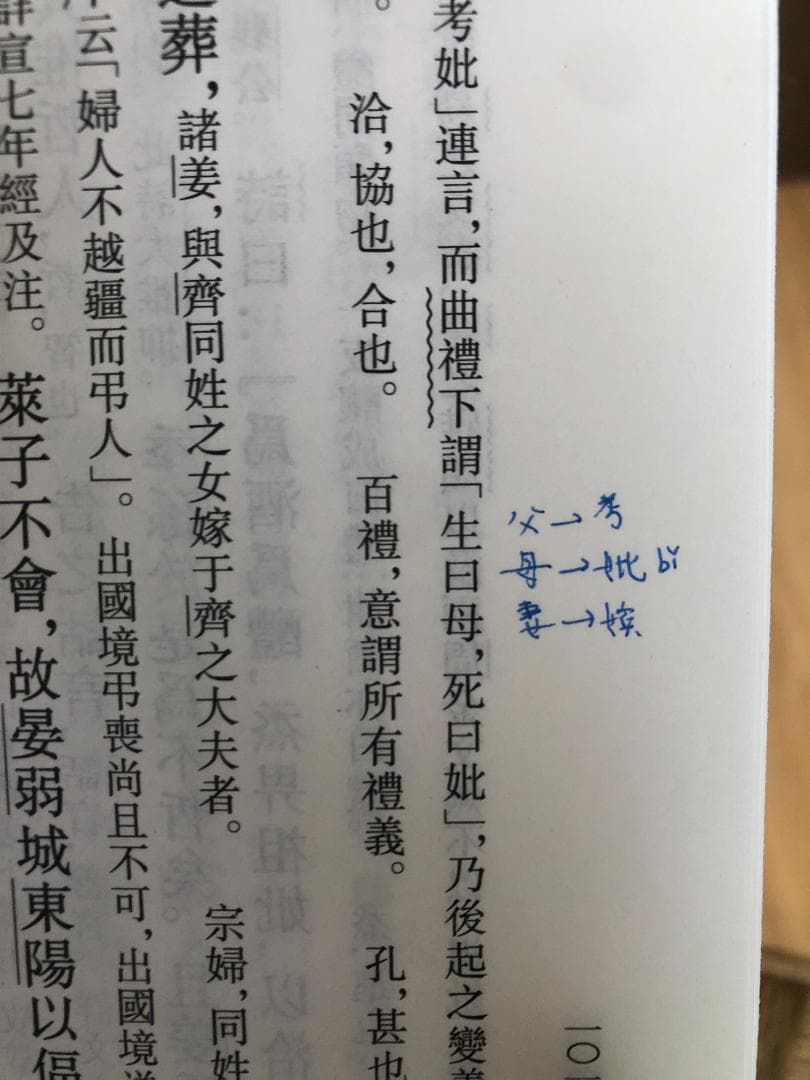 考妣」連言，而曲禮下謂「生曰母，死曰妣」，乃後起之變義
。 洽，協也，合也。 百禮，意謂所有禮義。 孔，甚也
葬，諸姜，與齊同姓之女嫁于齊之大夫者。 宗婦，同姓
云「婦人不越疆而弔人」。 出國境弔喪尚且不可，出國境
宣七年經及注。 萊子不會，故晏弱城東陽以偪
父→考
母→妣 bǐ
妻→嬪
一〇